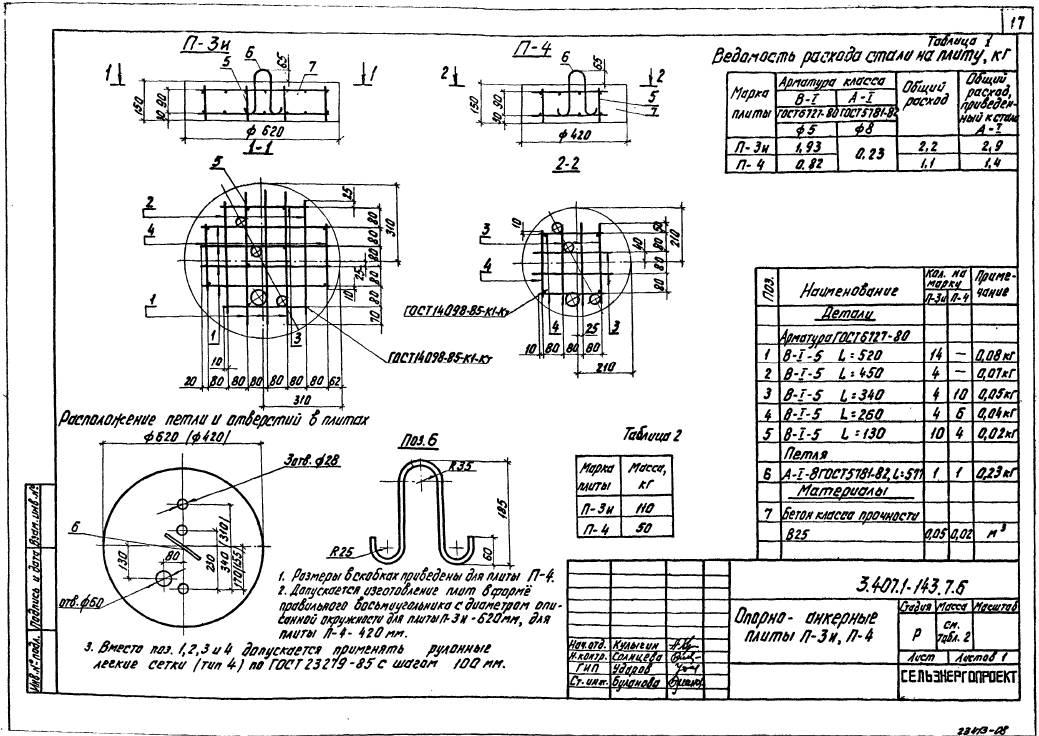 17
П-3и
6
5
65
7
1
1
150
90
10
ф 620
1-1
П-4
6
65
2
2
150
90
10
5
7
ф 420
2-2
Таблица 1
Ведомость расхода стали на плиту, кг
Марка плиты
Арматура класса
В-I
А-I
ГОСТ 6727-80
ГОСТ 5781-82
ф5
ф8
Общий расход
Общий расход, приведен-ный к стали А-I
П-3и 1,93 0,23 2,2 2,9
П-4 0,82 1,1 1,4
5
2
4
1
1
3
25
80
80
80
80
80
70
25
10
310
ГОСТ 14098-85-К1-Кт
10
20 80 80 80 80 80 80 62
310
10
3
4
40
80
80
80
210
ГОСТ 14098-85-К1-Кт
4
25
3
10 80 80 80
210
Поз.
Наименование
Кол. на марку
П-3и П-4
Приме-чание
Детали
Арматура ГОСТ 6727-80
1 В-I-5 L=520 14 — 0,08кг
2 В-I-5 L=450 4 — 0,07кг
3 В-I-5 L=340 4 10 0,05кг
4 В-I-5 L=260 4 6 0,04кг
5 В-I-5 L=130 10 4 0,02кг
Петля
6 А-I-8 ГОСТ 5781-82, L=577 1 1 0,23кг
Материалы
7 Бетон класса прочности
В25 0,05 0,02 м³
Расположение петли и отверстий в плитах
ф620 (ф420)
3отв. ф28
6
130
80
отв. ф60
340
210
Поз. 6
R35
R25
185
60
Таблица 2
Марка плиты
Масса, кг
П-3и 110
П-4 50
1. Размеры в скобках приведены для плиты П-4.
2. Допускается изготовление плит в форме
правильного восьмиугольника с диаметром опи-
санной окружности для плиты П-3и -620мм, для
плиты П-4- 420 мм.
3. Вместо поз. 1,2,3 и 4 допускается применять рулонные
легкие сетки (тип 4) по ГОСТ 23279-85 с шагом 100 мм.
Инв.№подл.
Подпись и дата
Взам.инв.№
3.407.1-143.7.6
Опорно-анкерные
плиты П-3и, П-4
Стадия Масса Масштаб
Р см. табл. 2
Лист Листов 1
СЕЛЬЭНЕРГОПРОЕКТ
Нач.отд. Кулыгин
Н-контр. Солнцева
ГИП Ударов
Ст. инж. Буланова
23473-08